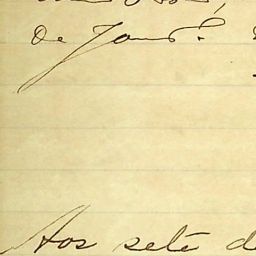 de Janr.º
Aos sete d